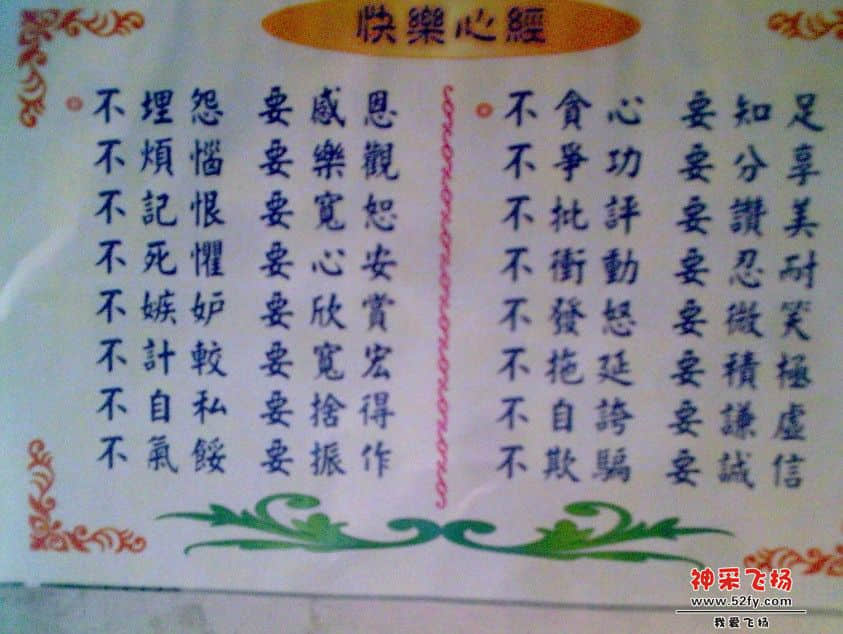 快樂心經
不埋怨 要感恩
不煩惱 要樂觀
不記恨 要寬恕
不死懼 要心安
不嫉妒 要欣賞
不計較 要寬宏
不自私 要捨得
不氣餒 要振作
不貪心 要知足
不爭功 要分享
不批評 要讚美
不衝動 要忍耐
不發怒 要微笑
不拖延 要積極
不自誇 要謙虛
不欺騙 要誠信
神采飞扬
www.52fy.com
我爱飞扬